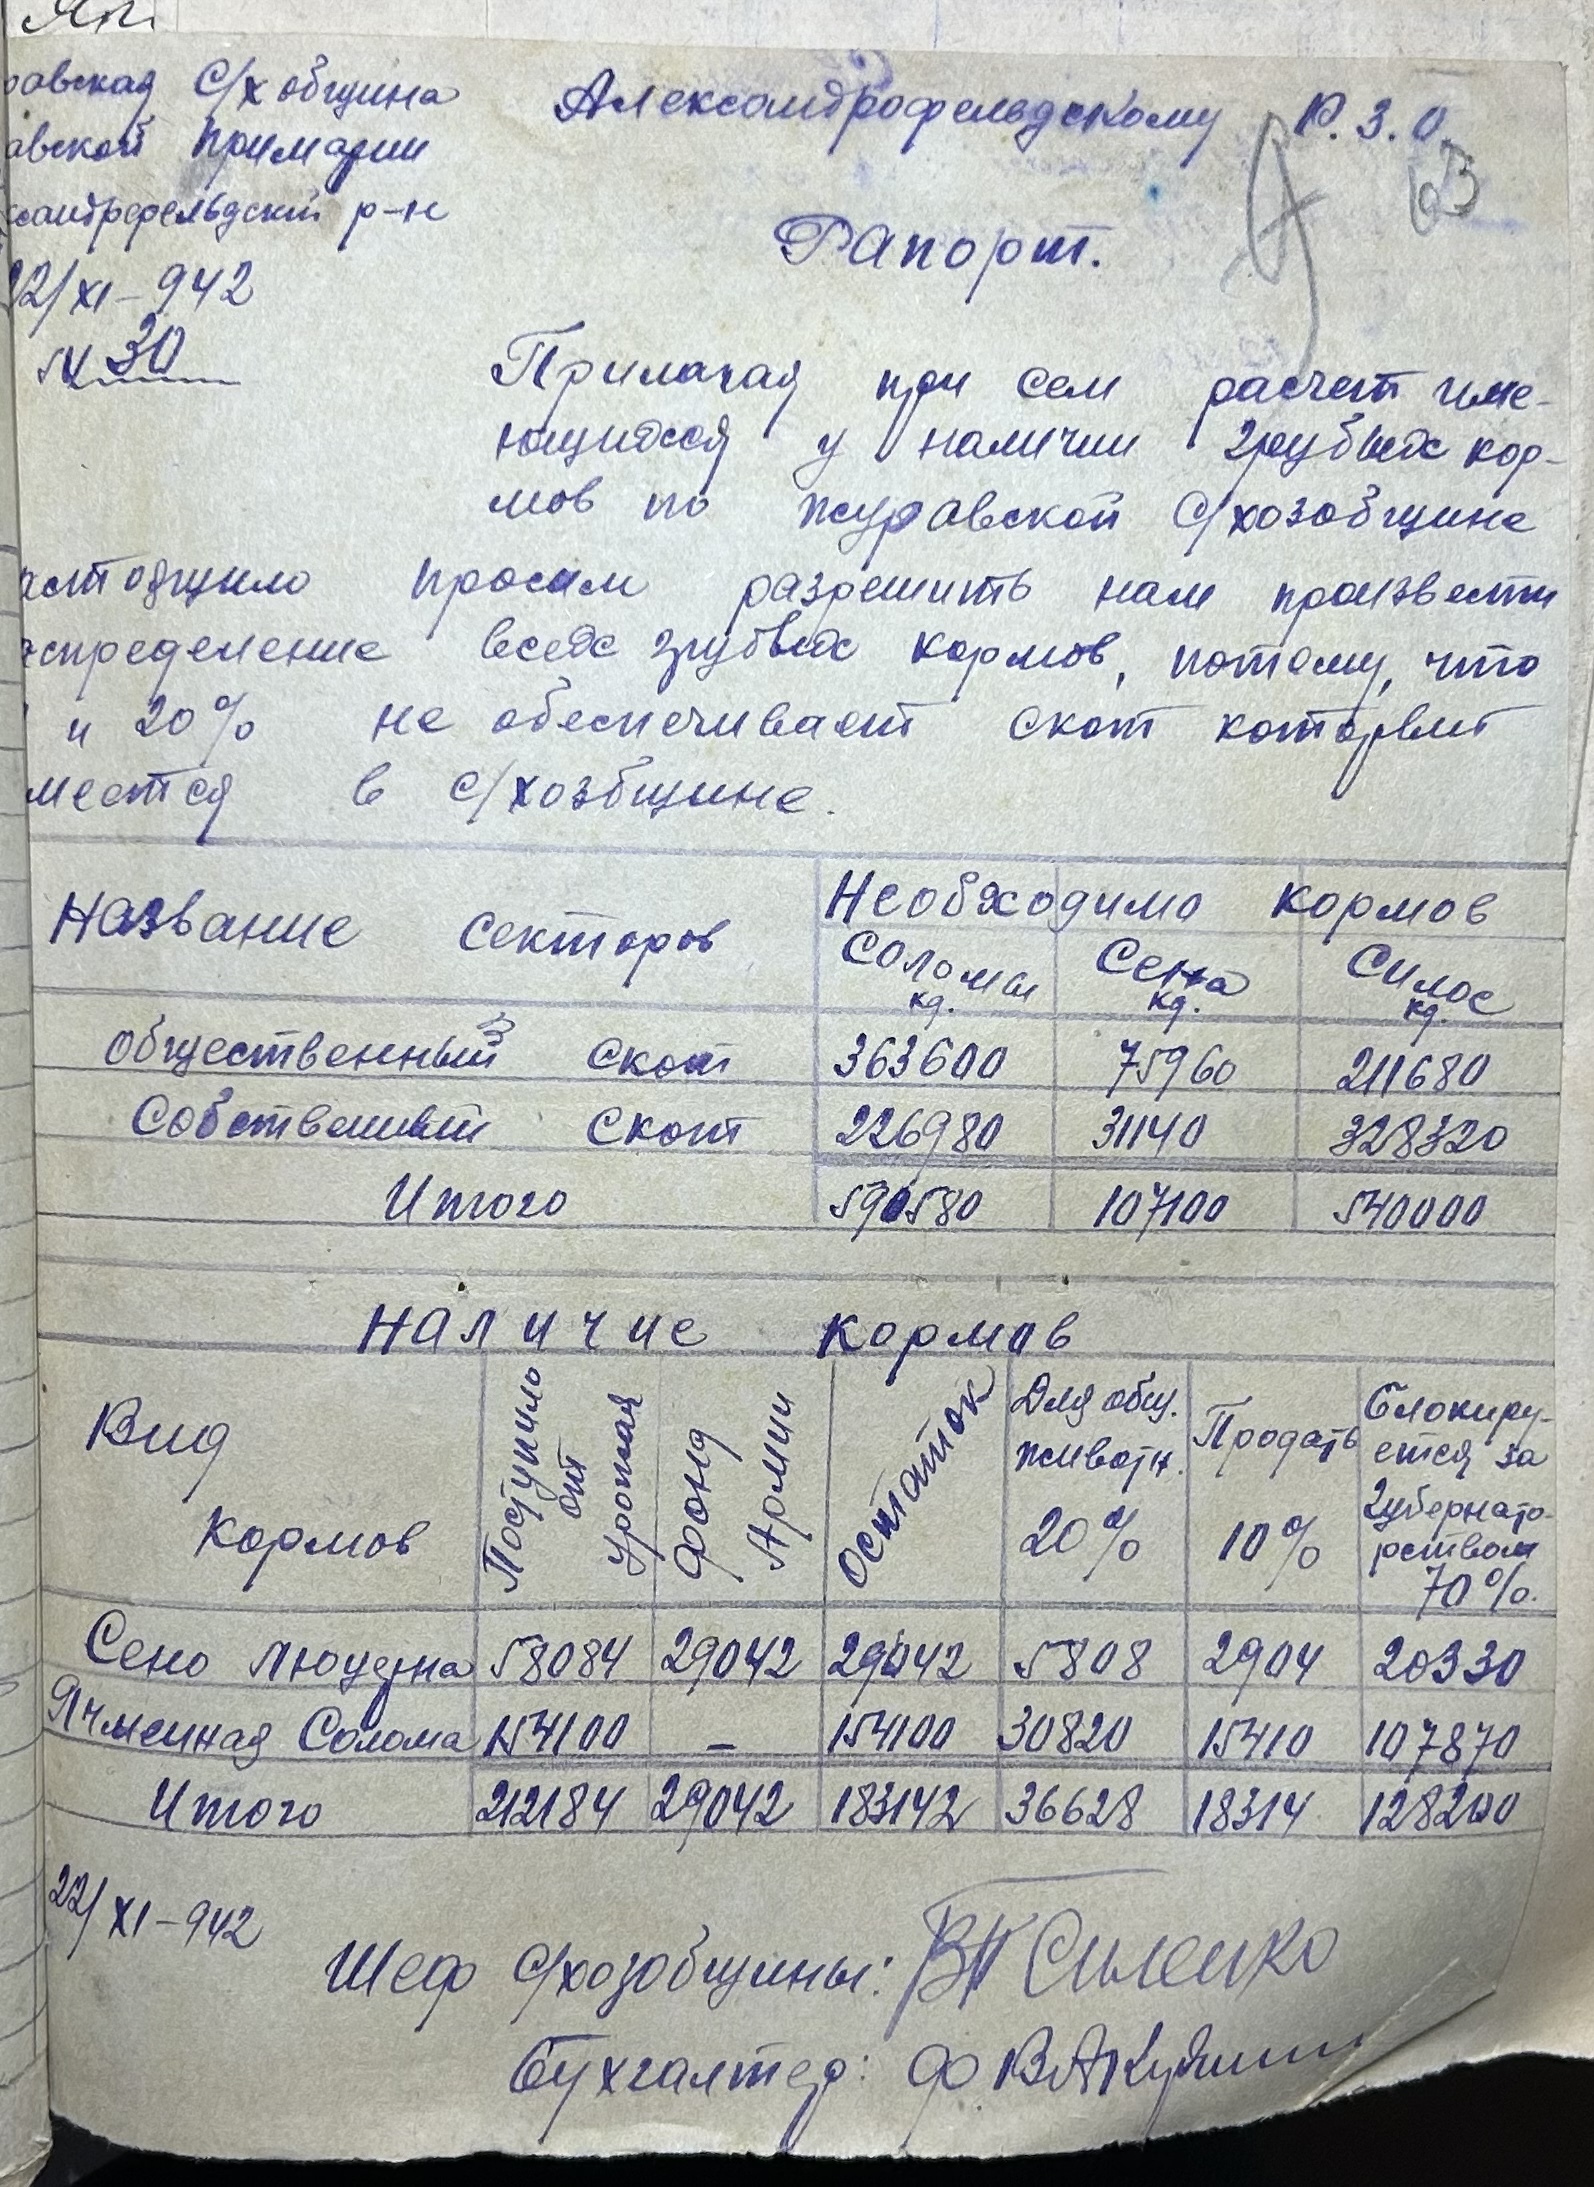 равская С/х община
авской Примарии
ксандрфельдский р-н
22/XI-942
№ 30
Александрофельдскому Р.З.О.
63
Рапорт.
Прилагая при сем расчет име-
ющихся у наличии грубых кор-
мов по Журавской С/хозобщине
астоящило просим разрешить нам произвести
аспределение всех грубых кормов, потому, что
и 20% не обеспечивает скот который
меется в с/хозбщине.
Название секторов Необходимо кормов
Соломы кг. Сена кг. Силос кг.
Общественный скот 363600 75960 211680
Собственный скот 226980 31140 328320
Итого 590580 107100 540000
Наличие кормов
Вид кормов Поступило от урожая Фонд Армии Остаток Для общ. животн. 20% Продать 10% Блокиру-
ется за
губернато-
рством
70%.
Сено люцерна 58084 29042 29042 5808 2904 20330
Ячменная Солома 154100 – 154100 30820 15410 107870
Итого 212184 29042 183142 36628 18314 128200
22/XI-942
Шеф с/хозобщины: ВП Силенко
Бухгалтер: Ф.